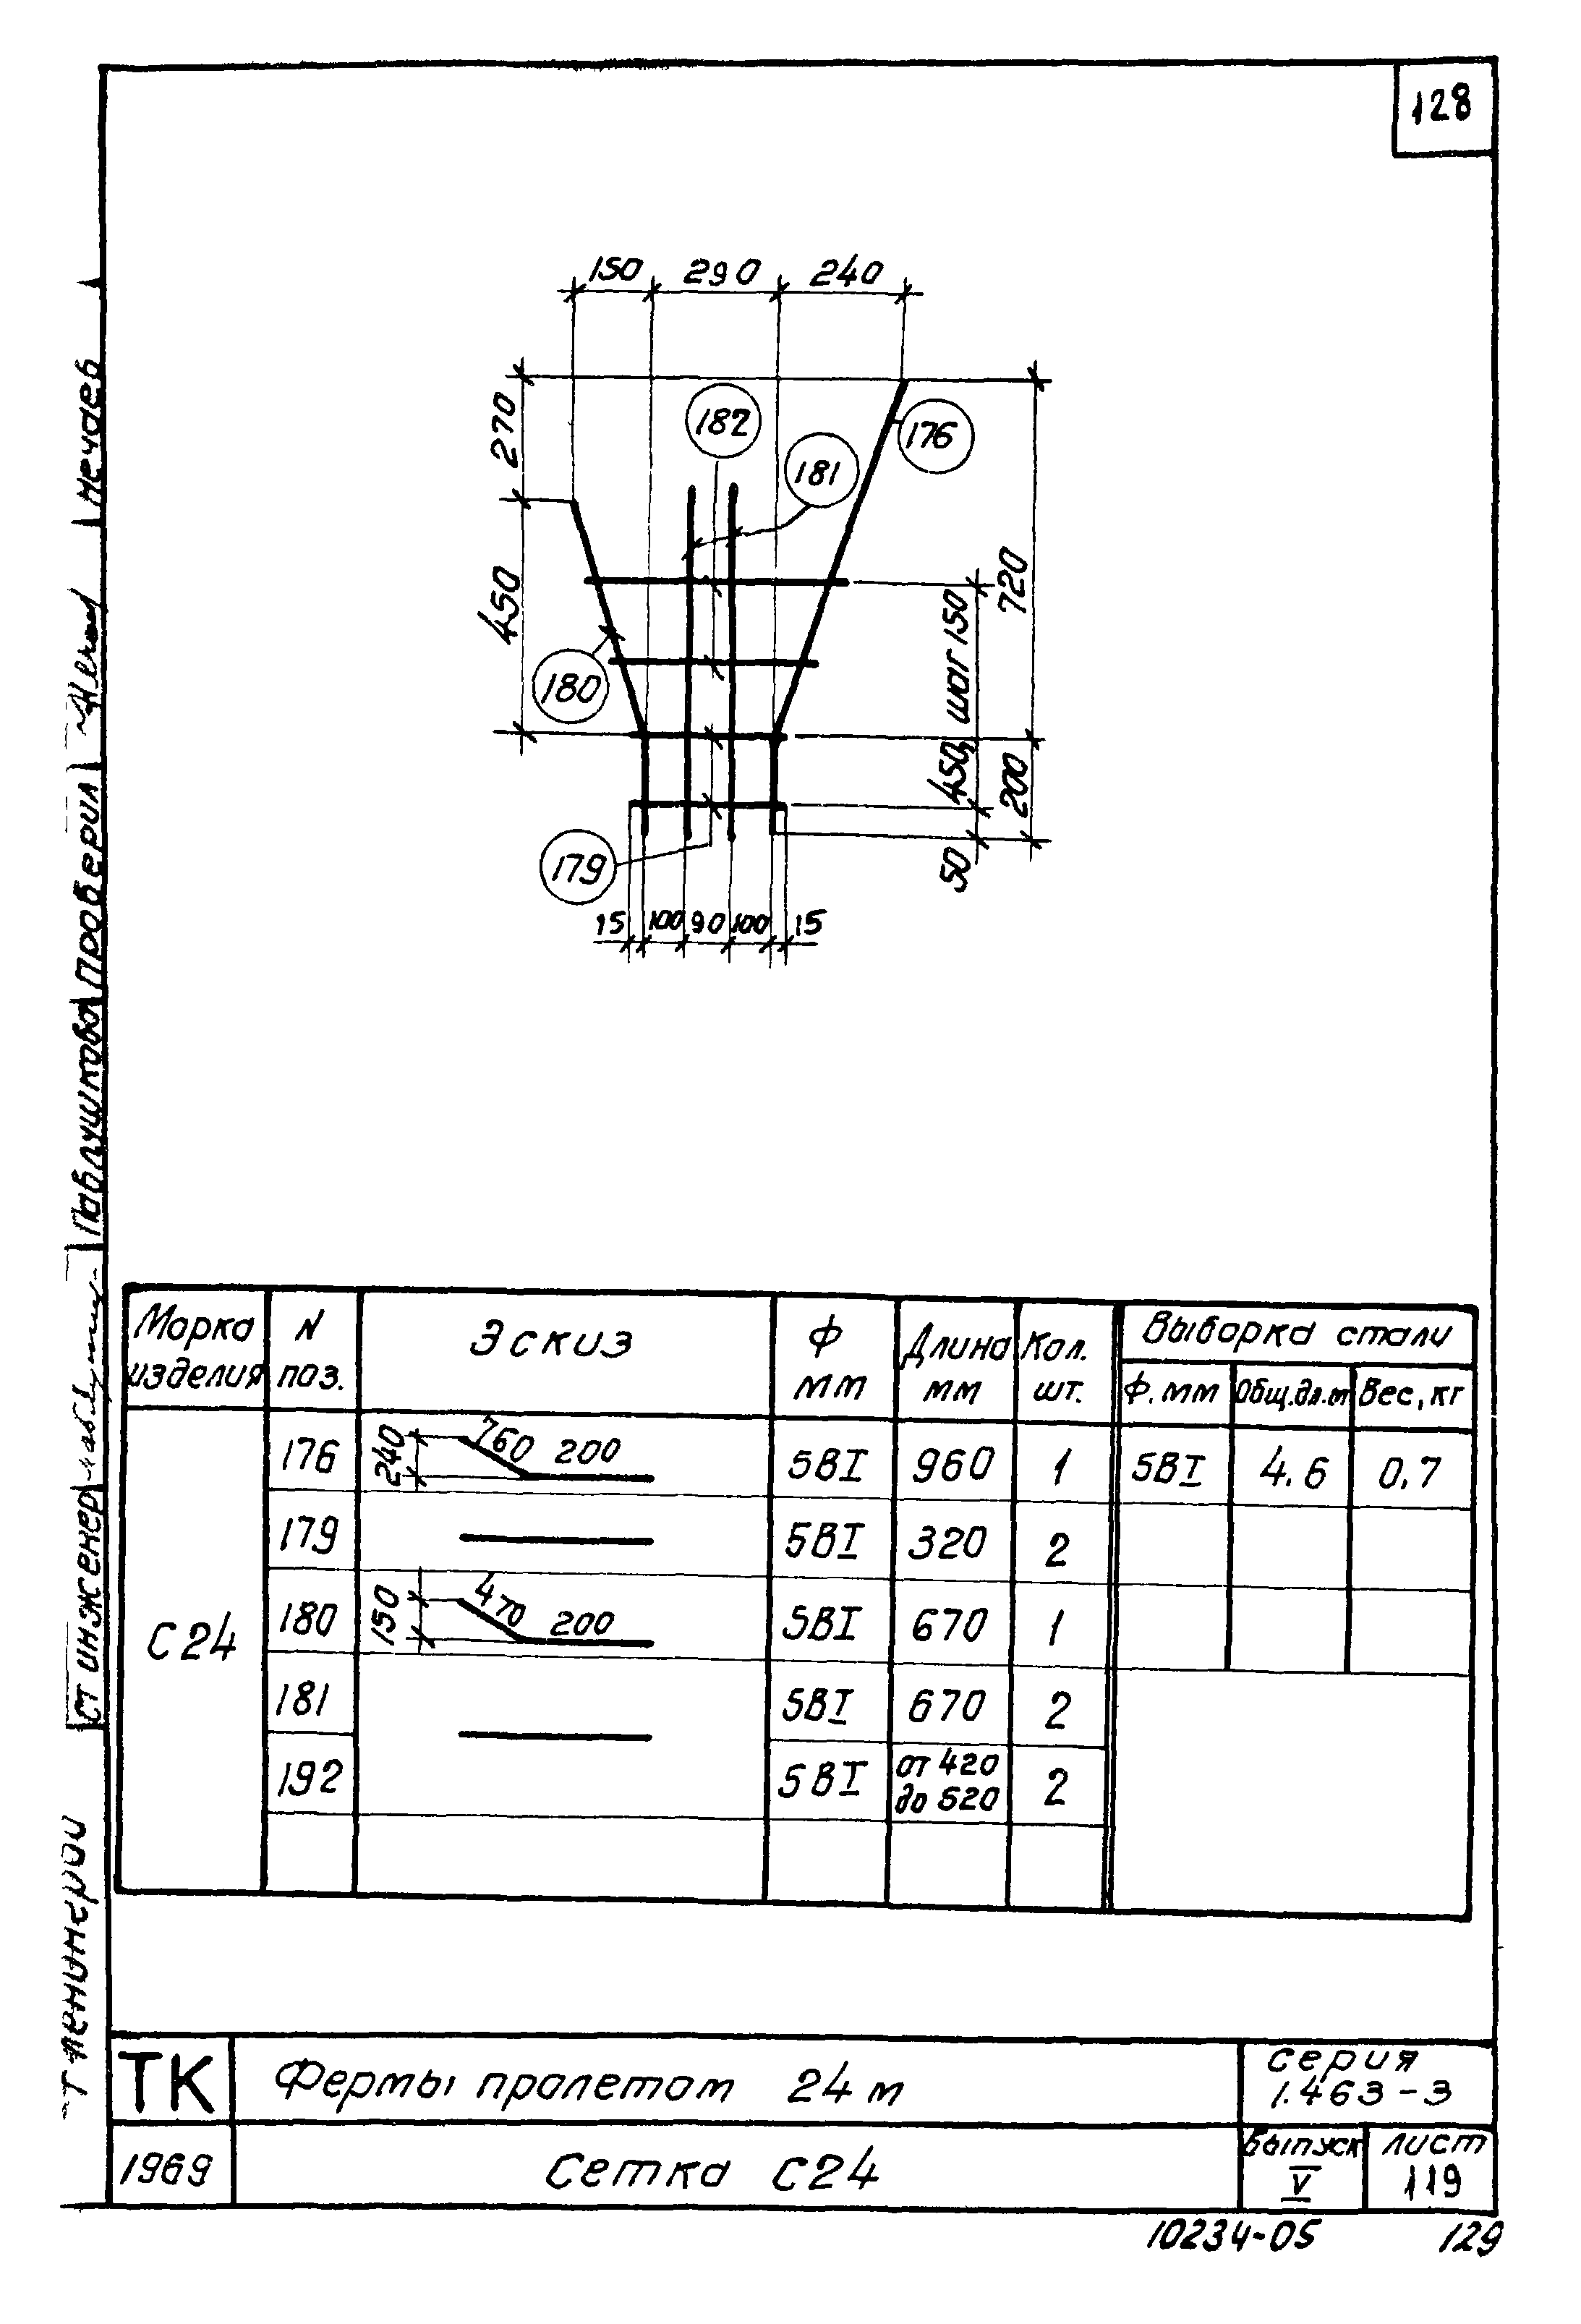 128
150 290 240
270
182
176
181
450
720
шаг 150
180
450,
200
179
50
15 100 90 100 15
Марка изделия
N поз.
Эскиз
Ф мм
Длина мм
Кол. шт.
Выборка стали
Ф. мм Общ.дл.м Вес, кг
С24
176 240 760 200 5ВI 960 1 5ВI 4.6 0,7
179 5ВI 320 2
180 150 470 200 5ВI 670 1
181 5ВI 670 2
192 5ВI от 420 до 520 2
ТК
Фермы пролетом 24 м
серия
1.463-3
1969
Сетка С24
Выпуск
V
лист
119
10234-05
129
Ст инженер Павлушкова проверил Нечаев